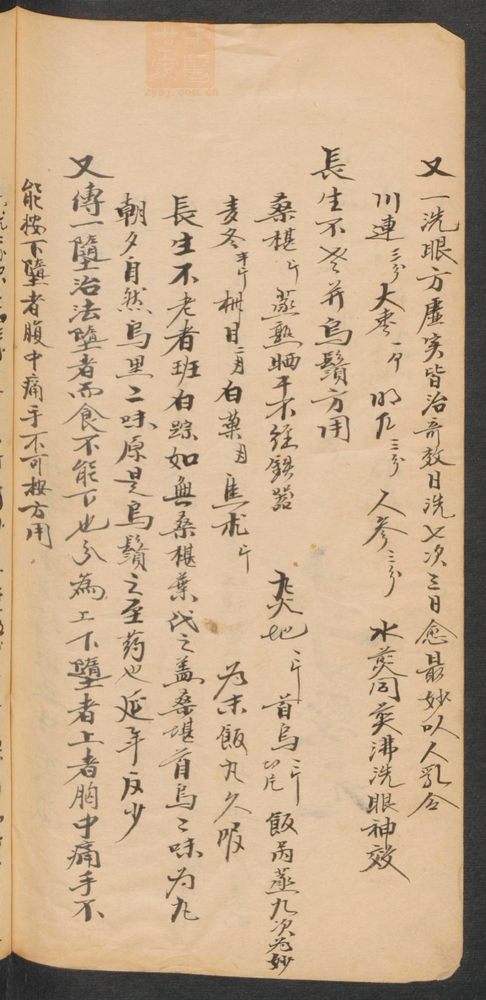 又一洗眼方虛实皆治奇效日洗七次三日愈最妙以人乳合
川連三分大枣一个 明凡三分 人参三分 水煎同煎沸洗眼神效
長生不老并烏鬚方用
桑椹斤蒸熟晒干不经鉄器 大熟地二斤首烏二斤 飯內蒸九次为妙
麦冬半斤 白菓 焦朮斤 为末飯丸久服
長生不老者班白踪如無桑椹葉代之盖桑堪首烏二味为九
朝夕自然烏黑二味原是烏鬚之至药也延年反少
又傳一墮治法墮者而食不能下也分為上下墮者上者胸中痛手不
能按下墮者腹中痛手不可按方用